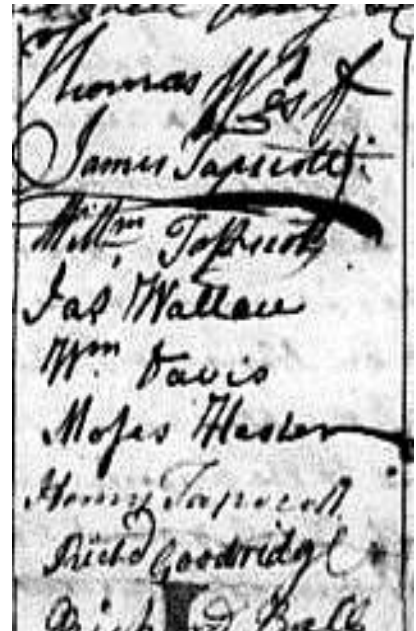 Thomas West
James Tapscott
Willm Tapscott
Jas Wallace
Wm Davis
Moses Hester
Henry Tapscott
Richd Goodridge
Ball